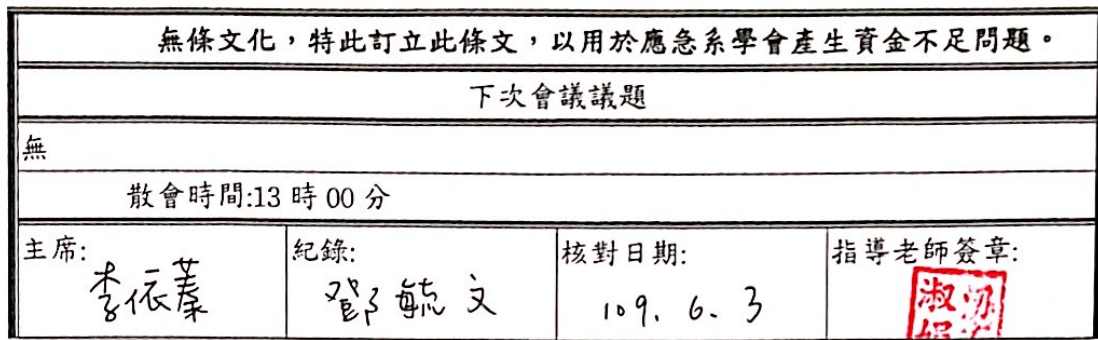 無條文化，特此訂立此條文，以用於應急系學會產生資金不足問題。
下次會議議題
無
散會時間:13 時 00 分
主席:
李依蓁
紀錄:
鄧毓文
核對日期:
109. 6. 3
指導老師簽章:
淑